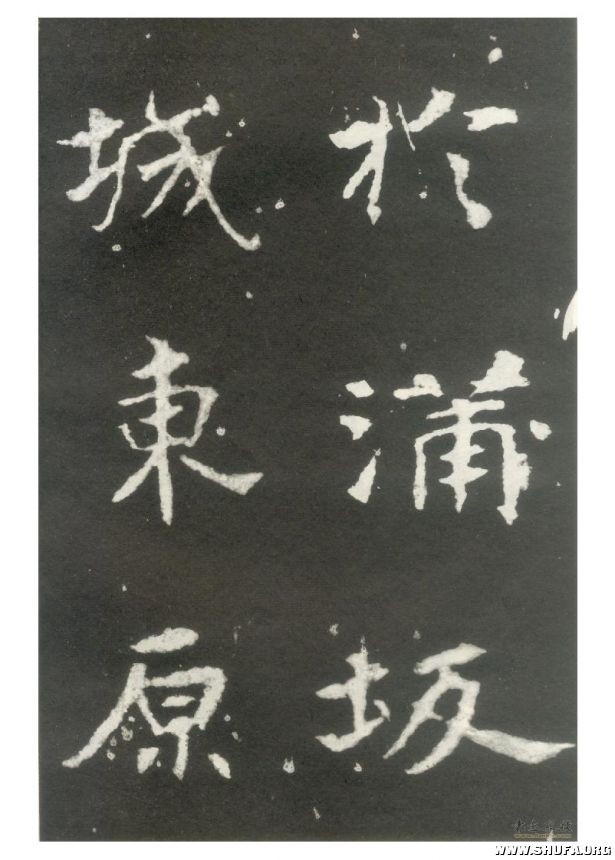 於蒲坂
城東原
WWW.SHUFA.ORG